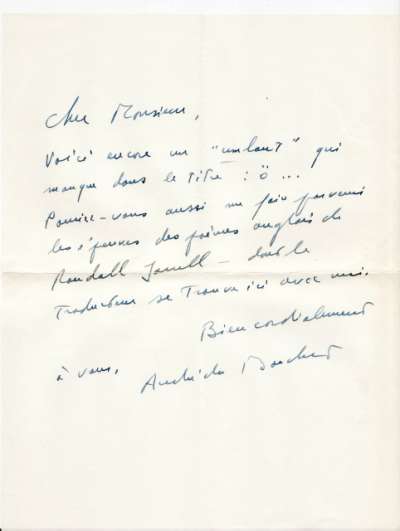 Cher Monsieur,
Voici encore un "umlaut" qui
manque dans le titre : ö ...
Pourriez-vous aussi me faire parvenir
les épreuves des poèmes anglais de
Randall Jarrell — dont le
traducteur se trouve ici avec moi.
Bien cordialement
à vous,
André du Bouchet